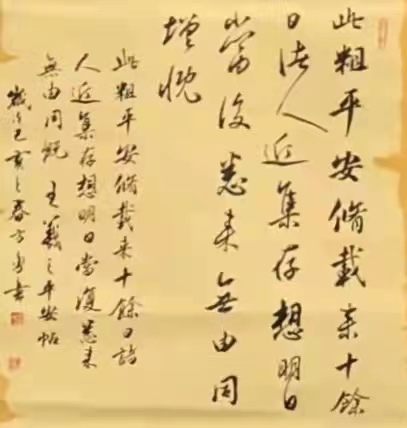 此粗平安脩載来十餘
日諸人近集存想明日
當復悉来無由同
增慨
此粗平安脩載来十餘日諸
人近集存想明日當復悉来
無由同慨 王羲之平安帖
歲己亥之春方書